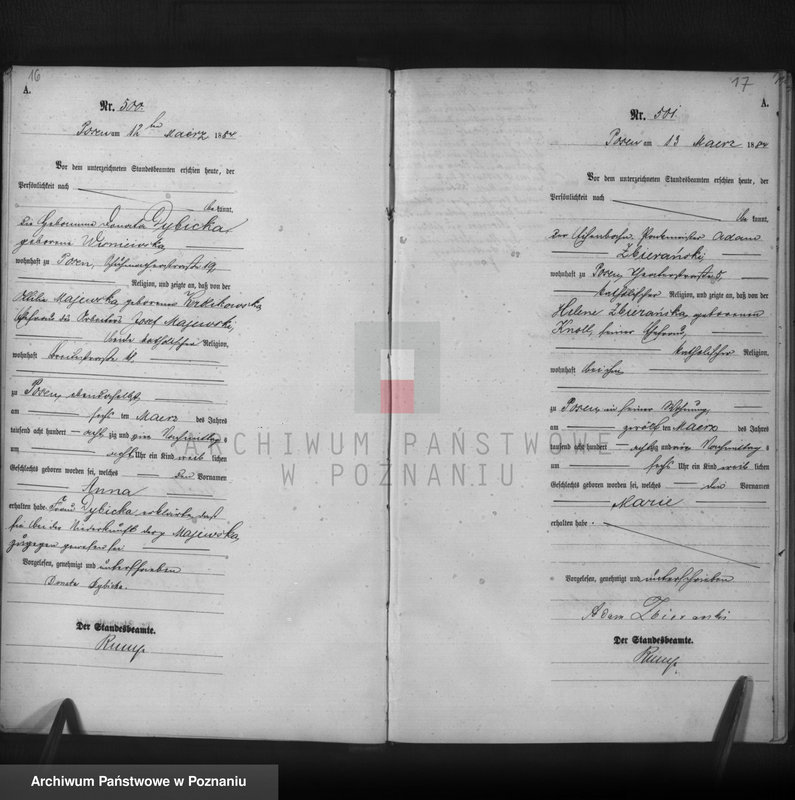 16
A.
Nr. 500.
Posen am 12 ten Maerz 1884
Vor dem unterzeichneten Standesbeamten erschien heute, der
Persönlichkeit nach
bekannt,
die Hebamme Donata Dybicka
geborene
wohnhaft zu Posen, 19,
Religion, und zeigte an, daß von der
Majewska, geborenen
Ehefrau des Arbeiters Josef Majewski,
beide katholischer Religion,
wohnhaft Breitestraße
zu Posen, ebendaselbst,
am sechsten Maerz des Jahres
tausend acht hundert achtzig und vier Vormittags
um acht Uhr ein Kind weiblichen
Geschlechts geboren worden sei, welches den Vornamen
Anna
erhalten habe. Frau Dybicka erklärte, daß
sie bei der Niederkunft der p. Majewska
zugegen gewesen sei
Vorgelesen, genehmigt und unterschrieben
Donata Dybicka.
Der Standesbeamte.
Rump.
17
A.
Nr. 501
Posen am 13 Maerz 1884
Vor dem unterzeichneten Standesbeamten erschien heute, der
Persönlichkeit nach
bekannt,
der Eisenbahn Adam
Zbierański,
wohnhaft zu Posen, Theaterstraße 5,
katholischer Religion, und zeigte an, daß von der
Helene Zbierańska, geborenen
Knoll, seiner Ehefrau,
katholischer Religion,
wohnhaft bei ihm
zu Posen, in seiner Wohnung,
am zwölften Maerz des Jahres
tausend acht hundert achtzig und vier Vormittags
um sechs Uhr ein Kind weiblichen
Geschlechts geboren worden sei, welches den Vornamen
Marie
erhalten habe.
Vorgelesen, genehmigt und unterschrieben
Adam Zbierański
Der Standesbeamte.
Rump.
ARCHIWUM PAŃSTWOWE
W POZNANIU
Archiwum Państwowe w Poznaniu